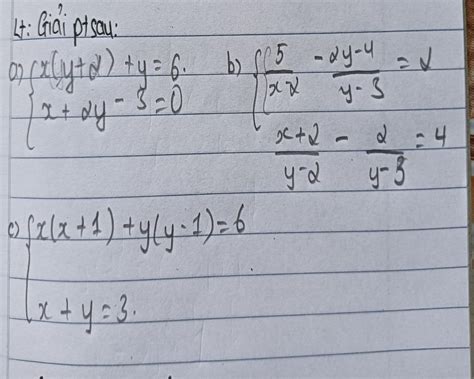 Lt: Giải pt sau:
a) { x(y+2) + y = 6.
x + 2y - 3 = 0
b) { 5/(x-2) - (2y-4)/(y-3) = 2
(x+2)/(y-2) - 2/(y-3) = 4
c) { x(x+1) + y(y-1) = 6
x + y = 3.